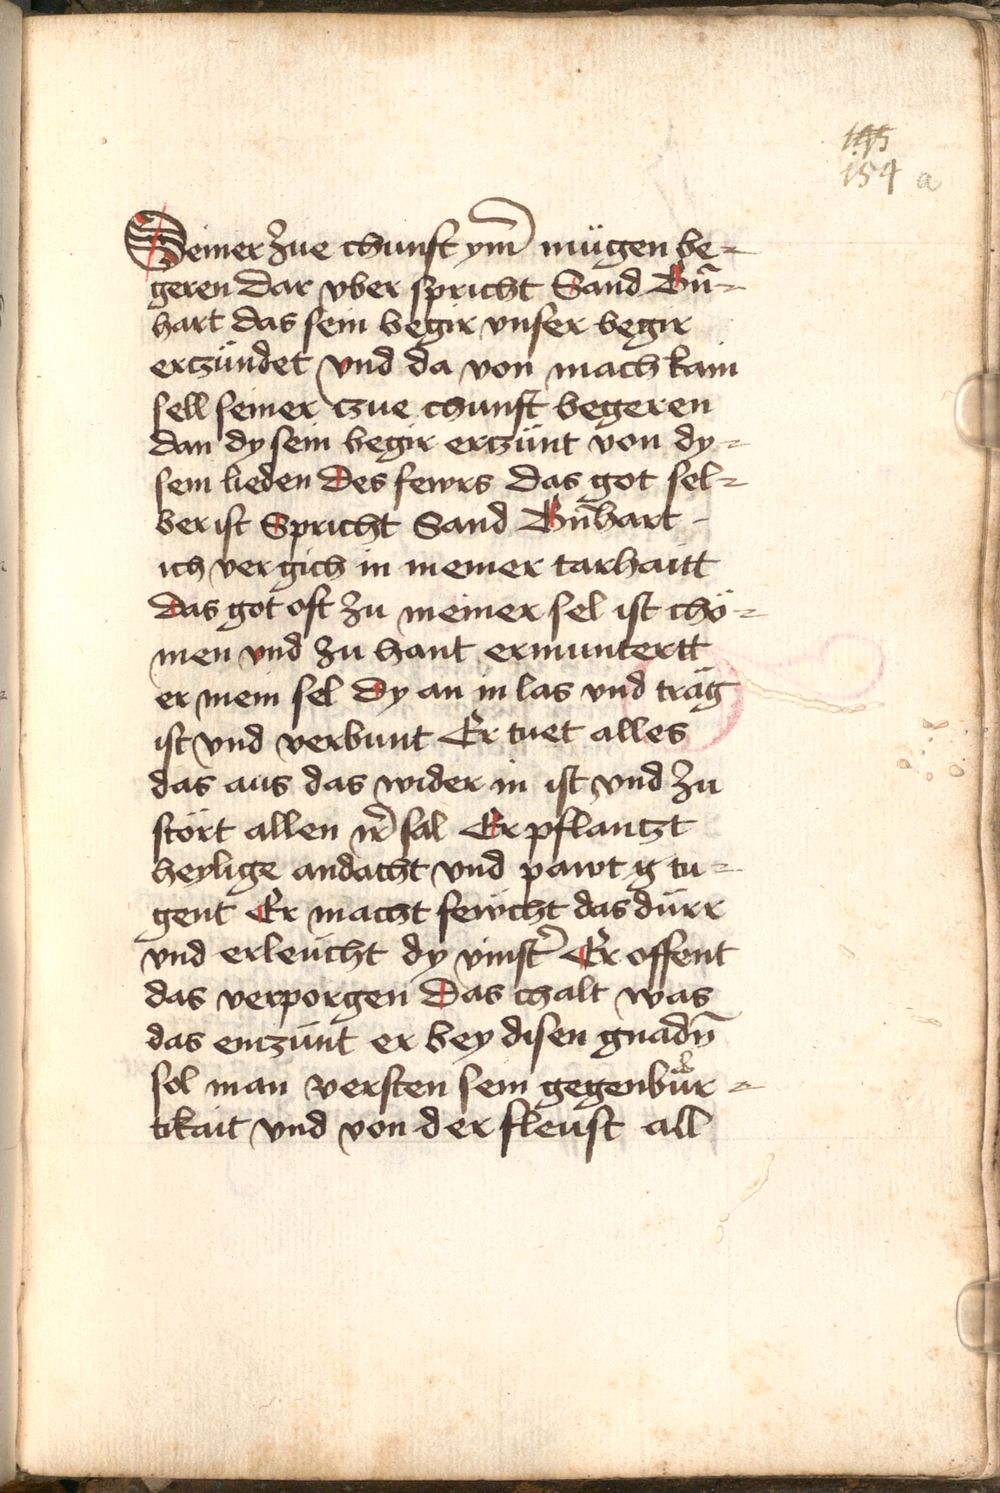 154 a
Seiner zue chunft ym̄ mügen be-
geren Dar vber spricht Sand Bn̄-
hart das sein begir vnser begir
erczündet vnd da von mach kain
sell seiner czue chunft begeren
dan dy sein begir erczünt von dy-
sem lieden Des fewrs das got sel-
ber ist Spricht Sand Bn̄hart -
ich ver gich in meiner tarhaitt
Das got oft zu meiner sel ist chö-
men vnd zu hant ermuntertt
er mein sel Dy an in las vnd träg
ist vnd verbunt Er tuet alles
das aus das wider in ist vnd zu
stört allen ir̄ sal Er pflantzt
heylige andacht vnd pawt g tu-
gent Er macht fewcht das dürr
vnd erleücht dy vinst̄ Er offent
das verporgen Das chalt was
das enczünt er bey disen gnadn̄
sol man versten sein gegenbür-
tikait vnd von der fleust all